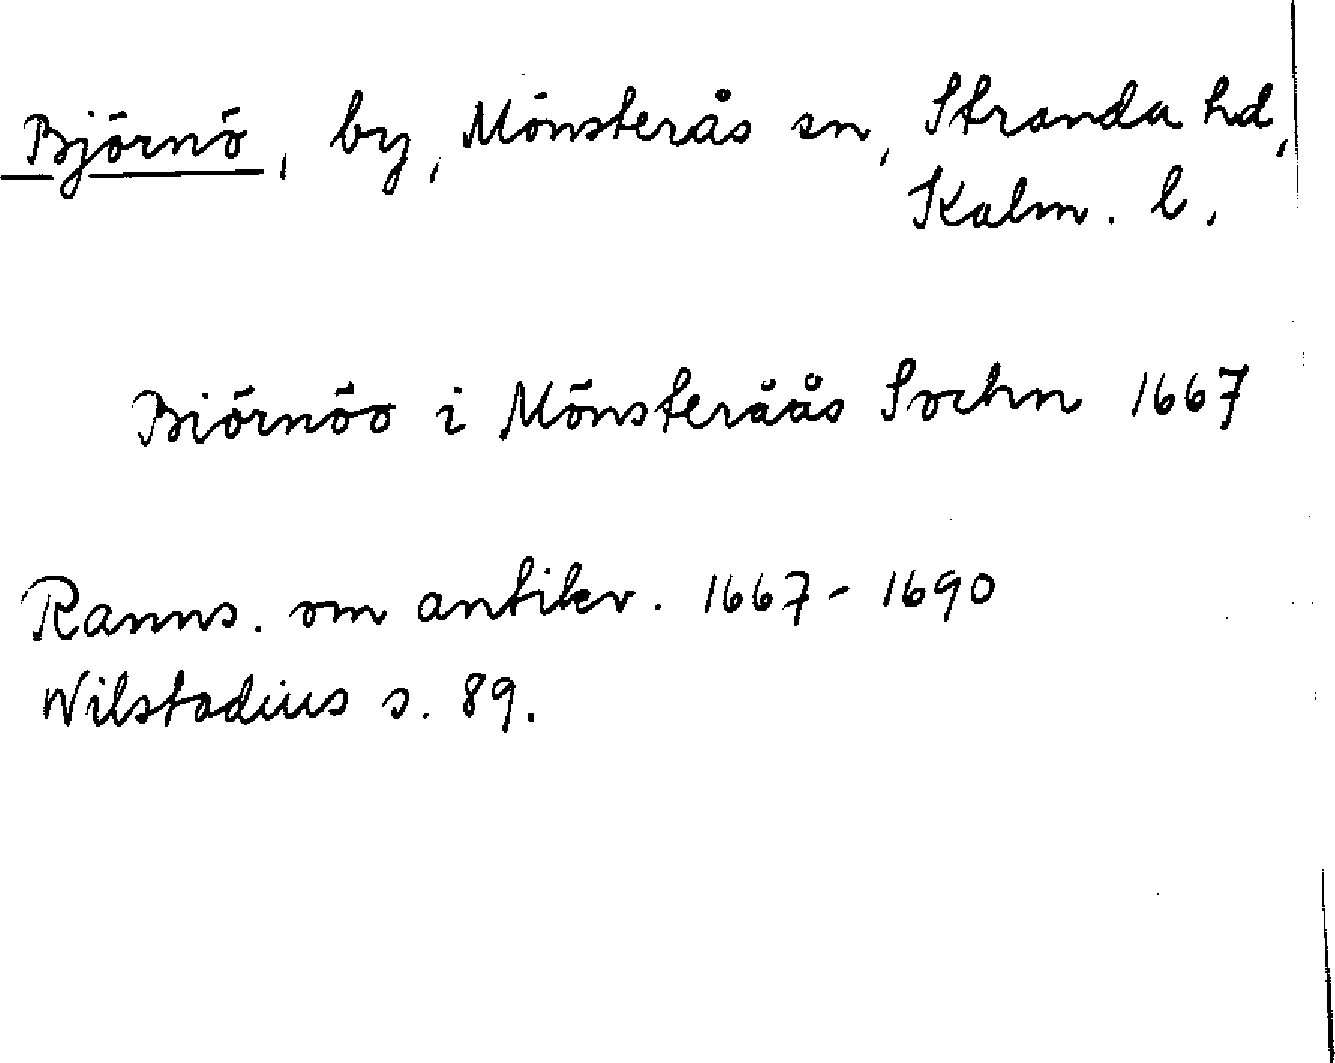 Björnö, by, Mönsterås sn, Stranda hd,
Kalm. l.
Biörnöo i Mönsteråås Sochn 1667
Ranns. om antikv. 1667-1690
Wilstadius s. 89.